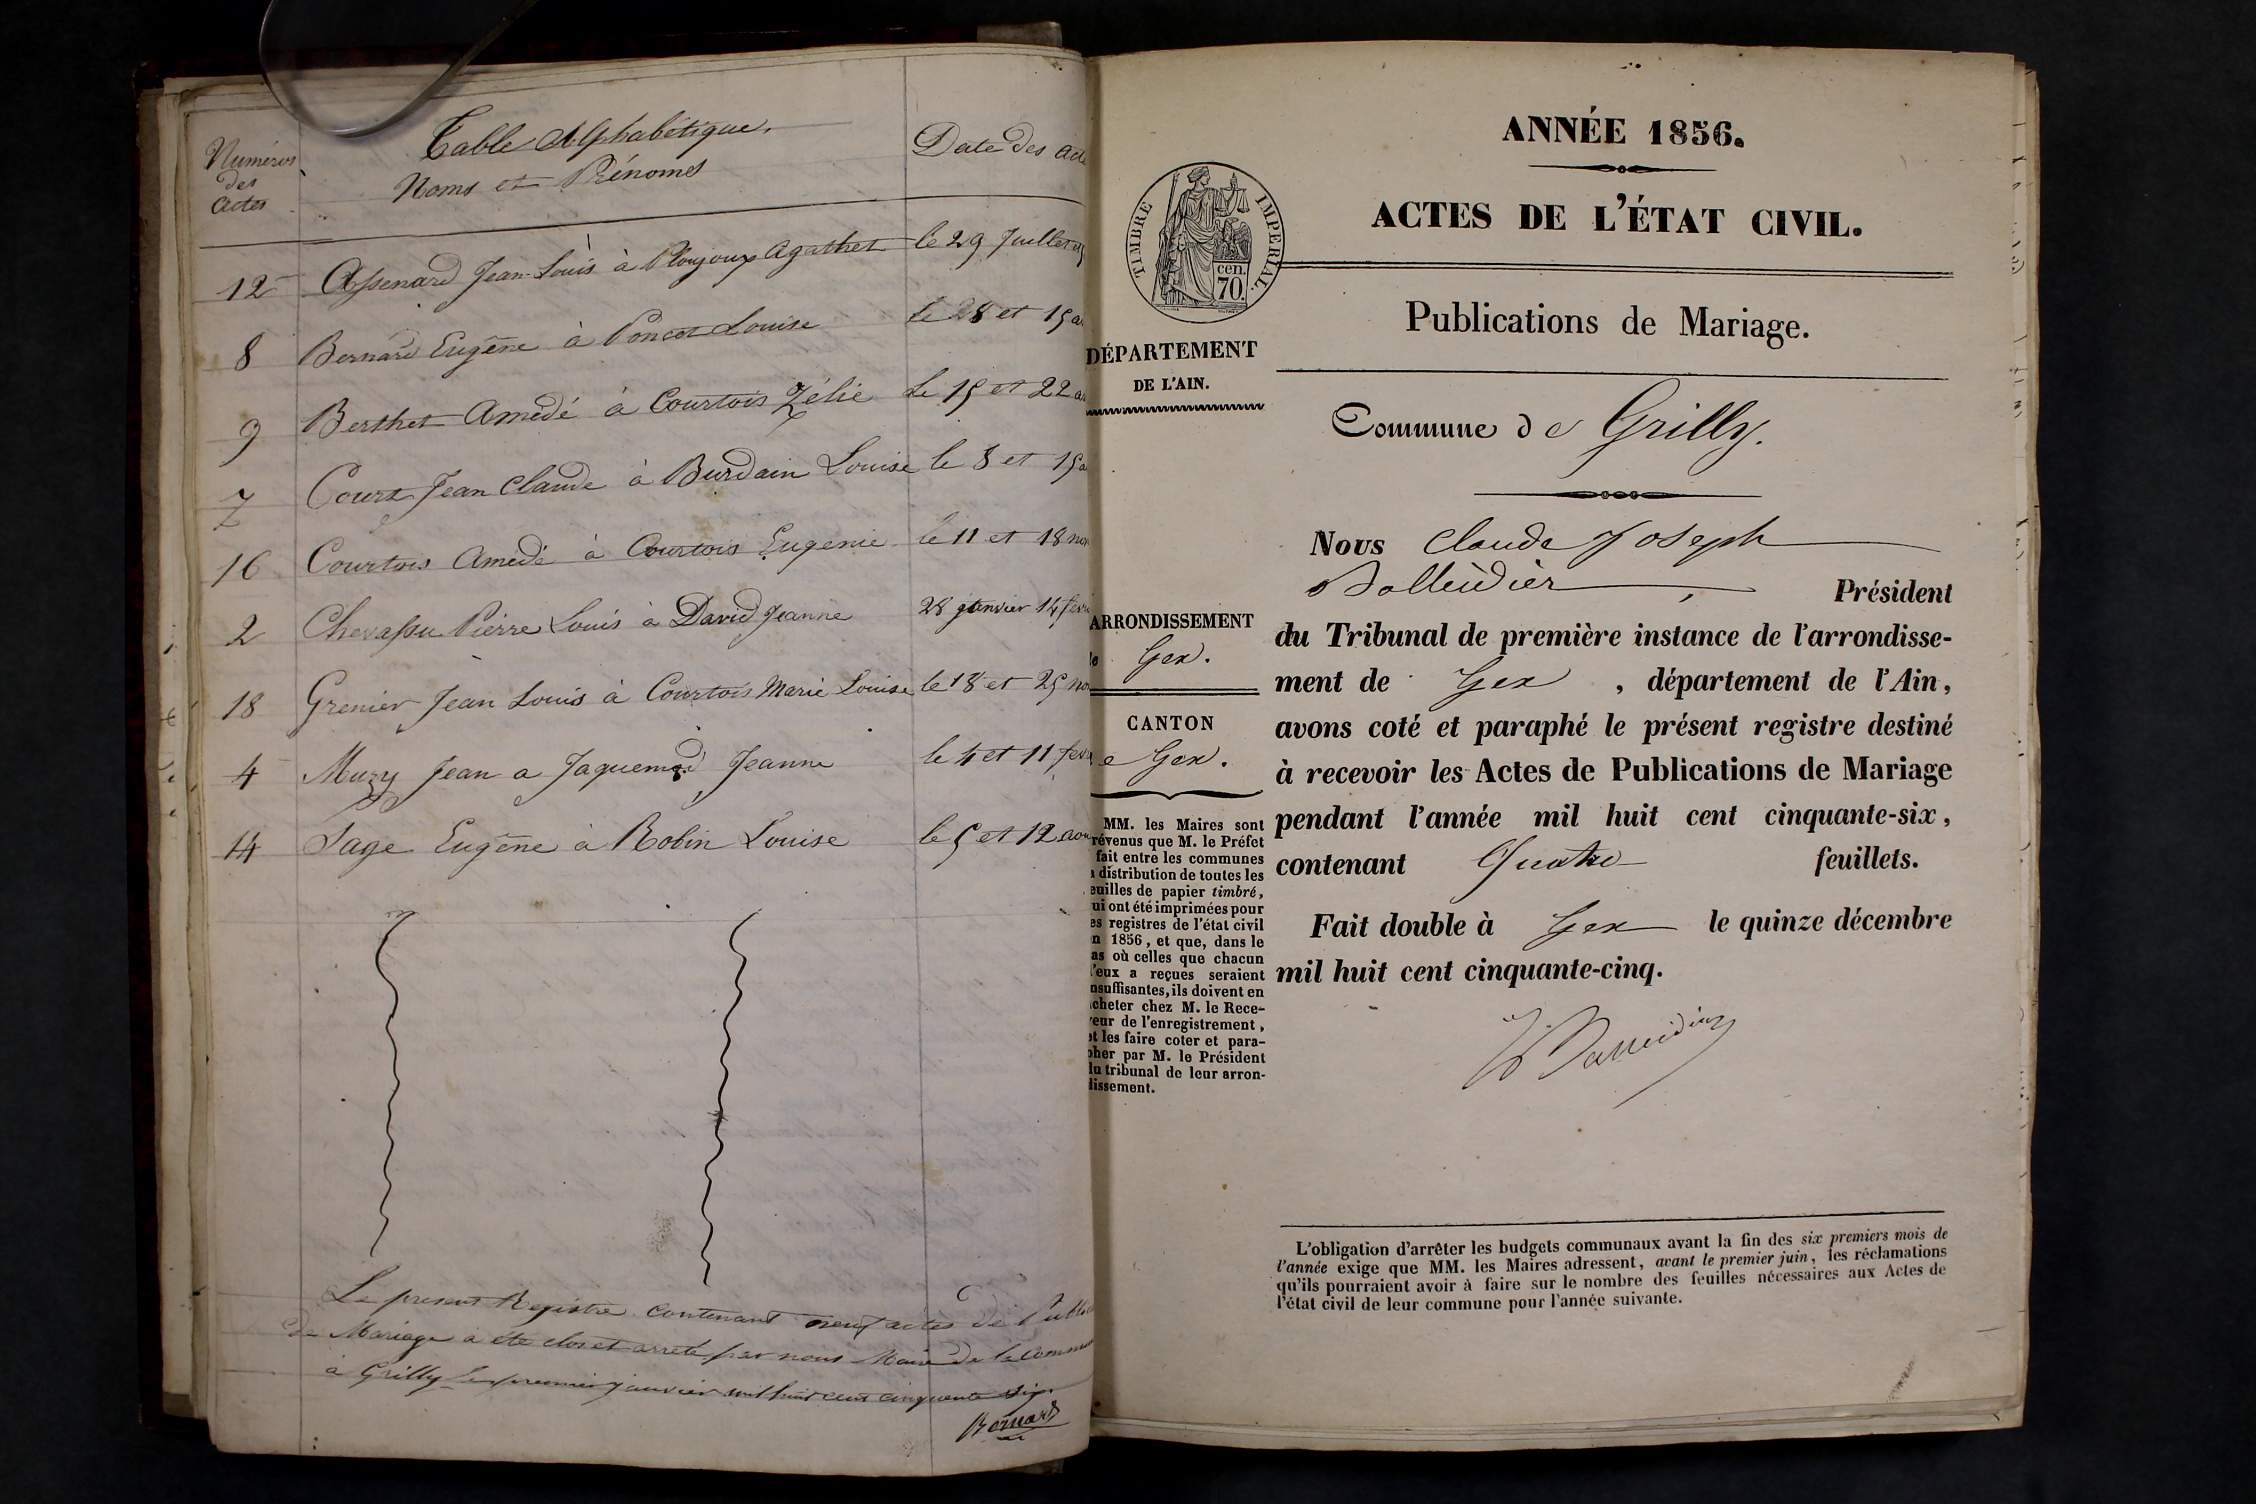 Numéros
des
Actes
Table Alphabétique.
Noms et Prénoms
Date des Acte
12 Assenard Jean-Louis à Ploujoux Agathe le 29 Juillet
8 Bernard Eugène à Poncet Louise le 28 et 15 a
9 Berthet Amédé à Courtois Zélie Le 15 et 22 a
7 Court Jean Claude à Burdain Louise le 8 et 15 a
16 Courtois Amédé à Courtois Eugenie le 11 et 18 nov
2 Chevassu Pierre Louis à David Jeanne 28 janvier 14 fevri
18 Grenier Jean Louis à Courtois Marie Louise le 18 et 25 nov
4 Muzy Jean a Jaquemod Jeanne le 4 et 11 fevr
14 Sage Eugène à Robin Louise le 5 et 12 aou
Le present Registre contenant neuf actes de Publica
de Mariage a ete clos et arrete par nous Maire de la Commun
à Grilly le premier janvier mil huit cent cinquante six.
Bernard
ANNÉE 1856.
ACTES DE L'ÉTAT CIVIL.
TIMBRE IMPERIAL.
cen.
70.
Publications de Mariage.
DÉPARTEMENT
DE L'AIN.
Commune de Grilly.
Nous Claude Joseph
Balleidier, Président
du Tribunal de première instance de l'arrondisse-
ment de Gex, département de l'Ain,
avons coté et paraphé le présent registre destiné
à recevoir les Actes de Publications de Mariage
pendant l'année mil huit cent cinquante-six,
contenant Quatre feuillets.
Fait double à Gex le quinze décembre
mil huit cent cinquante-cinq.
Balleidier
ARRONDISSEMENT
Gex.
CANTON
e Gex.
MM. les Maires sont
révenus que M. le Préfet
fait entre les communes
a distribution de toutes les
euilles de papier timbré,
ui ont été imprimées pour
es registres de l'état civil
n 1856, et que, dans le
as où celles que chacun
l'eux a reçues seraient
nsuffisantes, ils doivent en
cheter chez M. le Rece-
veur de l'enregistrement,
et les faire coter et para-
pher par M. le Président
du tribunal de leur arron-
dissement.
L'obligation d'arrêter les budgets communaux avant la fin des six premiers mois de
l'année exige que MM. les Maires adressent, avant le premier juin, les réclamations
qu'ils pourraient avoir à faire sur le nombre des feuilles nécessaires aux Actes de
l'état civil de leur commune pour l'année suivante.